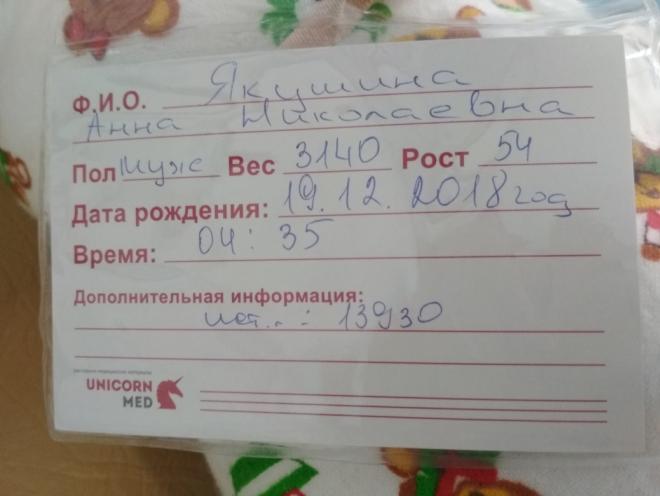 Ф.И.О. Якушина
Анна Николаевна
Пол Муж Вес 3140 Рост 54
Дата рождения: 19.12.2018 год
Время: 04:35
Дополнительная информация:
ист..: 13930
UNICORN
MED